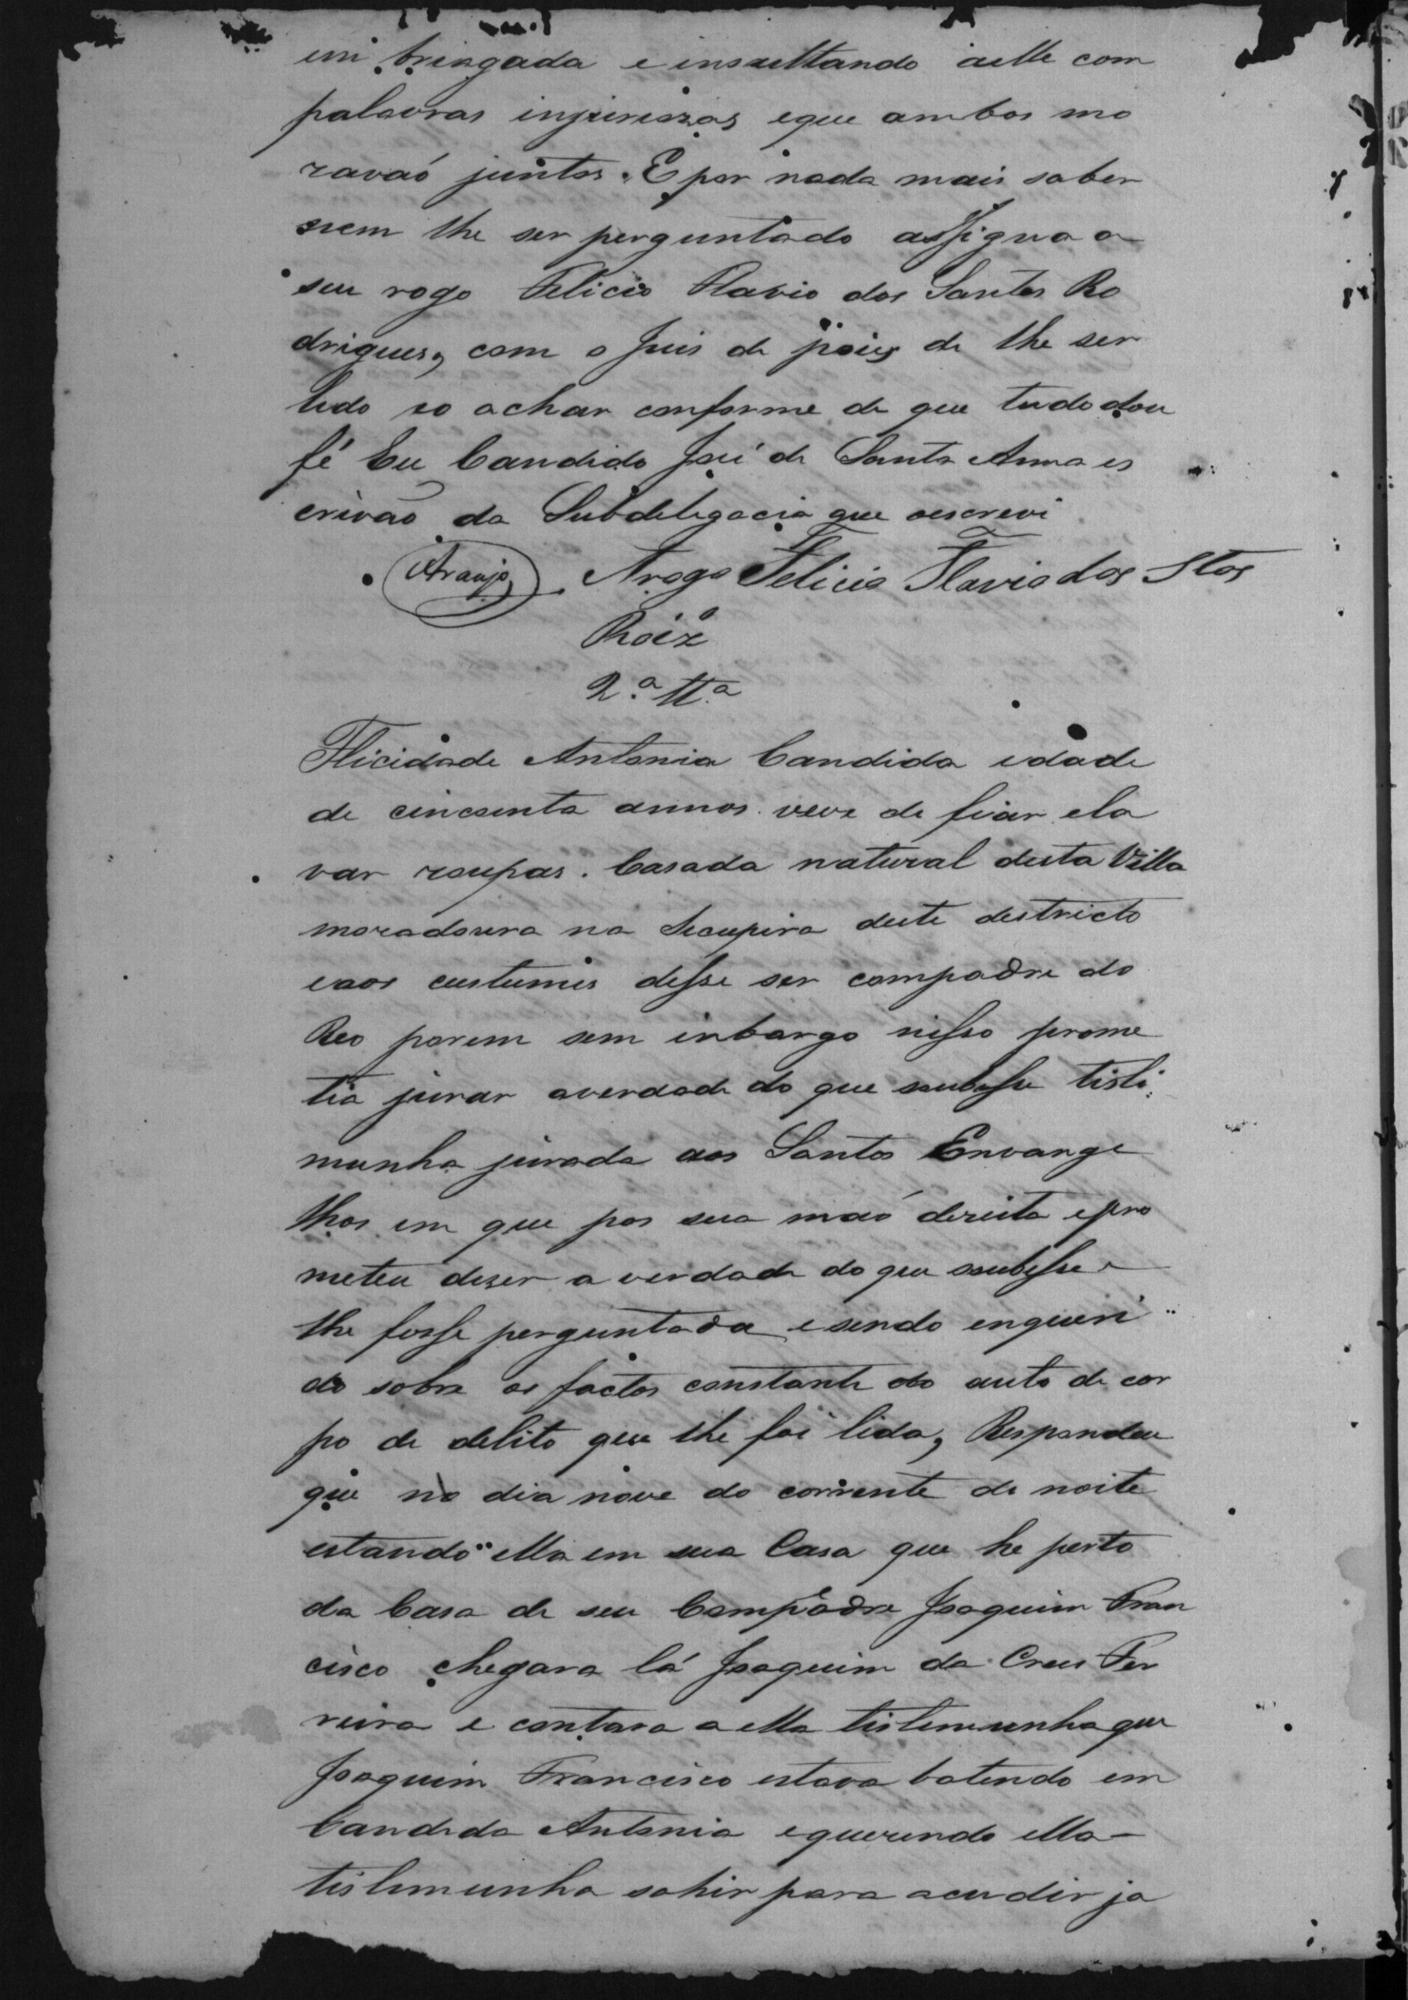 em bringada e insultando aelle com
palavras injuriozas eque ambos mo
ravaó juntos. E por nada mais saber
nem lhe ser perguntado assigna a
seu rogo Felicio Flavio dos Santos Ro
drigues, com o Juis de pois de lhe ser
lido eo achar conforme de que tudo dou
fé Eu Candido José de Santa Anna es
crivaõ da Subdelegacia que oescrevi
Araujo Arogo Felicio Flavio dos Stos
Roiz
2.ª tt.ª
Flicidade Antonia Candida idade
de cincoenta annos veve de fiar ela
var roupas. Casada natural desta Villa
moradoura na Sucupira deste destricto
eaos custumes desse ser compadre do
Reo porem sem inbargo nisso prome
tia jurar averdade do que soubesse tisti
munha jurada aos Santos Envange
lhos em que pos sua maó direita epro
meteu diser a verdade do que soubesse e
lhe fosse perguntada esendo enqueri
do sobre os factos constante do auto de cor
po de delito que lhe foi lido, Respondeu
que no dia nove do corrente de noite
estando ella em sua Casa que he perto
da Casa de seu Compadre Joaquim Fran
cisco chegara lá Joaquim da Creus Fer
reira e contara a ella tistemunha que
Joaquim Francisco estava batendo em
Candida Antonia equerendo ella
tistemunha sahir para acudir ja